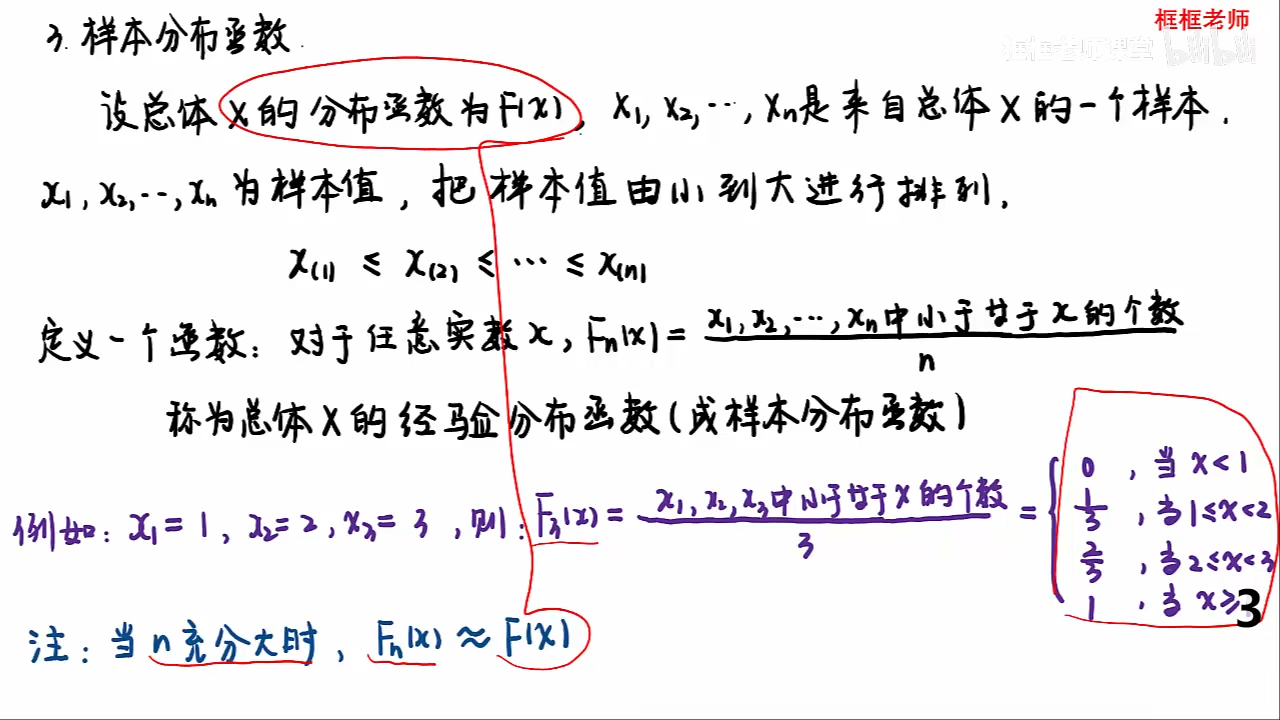 框框老师
框框老师课堂 bilibili
3. 样本分布函数.
设总体X的分布函数为F(x), X₁, X₂, ···, Xₙ是来自总体X的一个样本.
x₁, x₂, ···, xₙ为样本值, 把样本值由小到大进行排列.
x₍₁₎ ≤ x₍₂₎ ≤ ··· ≤ x₍ₙ₎
定义一个函数: 对于任意实数x, Fₙ(x) = x₁, x₂, ···, xₙ中小于等于x的个数 / n
称为总体X的经验分布函数(或样本分布函数)
例如: x₁=1, x₂=2, x₃=3, 则: F₃(x) = x₁, x₂, x₃中小于等于x的个数 / 3 = {
0, 当x<1
1/3, 当1≤x<2
2/3, 当2≤x<3
1, 当x≥3
注: 当n充分大时, Fₙ(x) ≈ F(x)